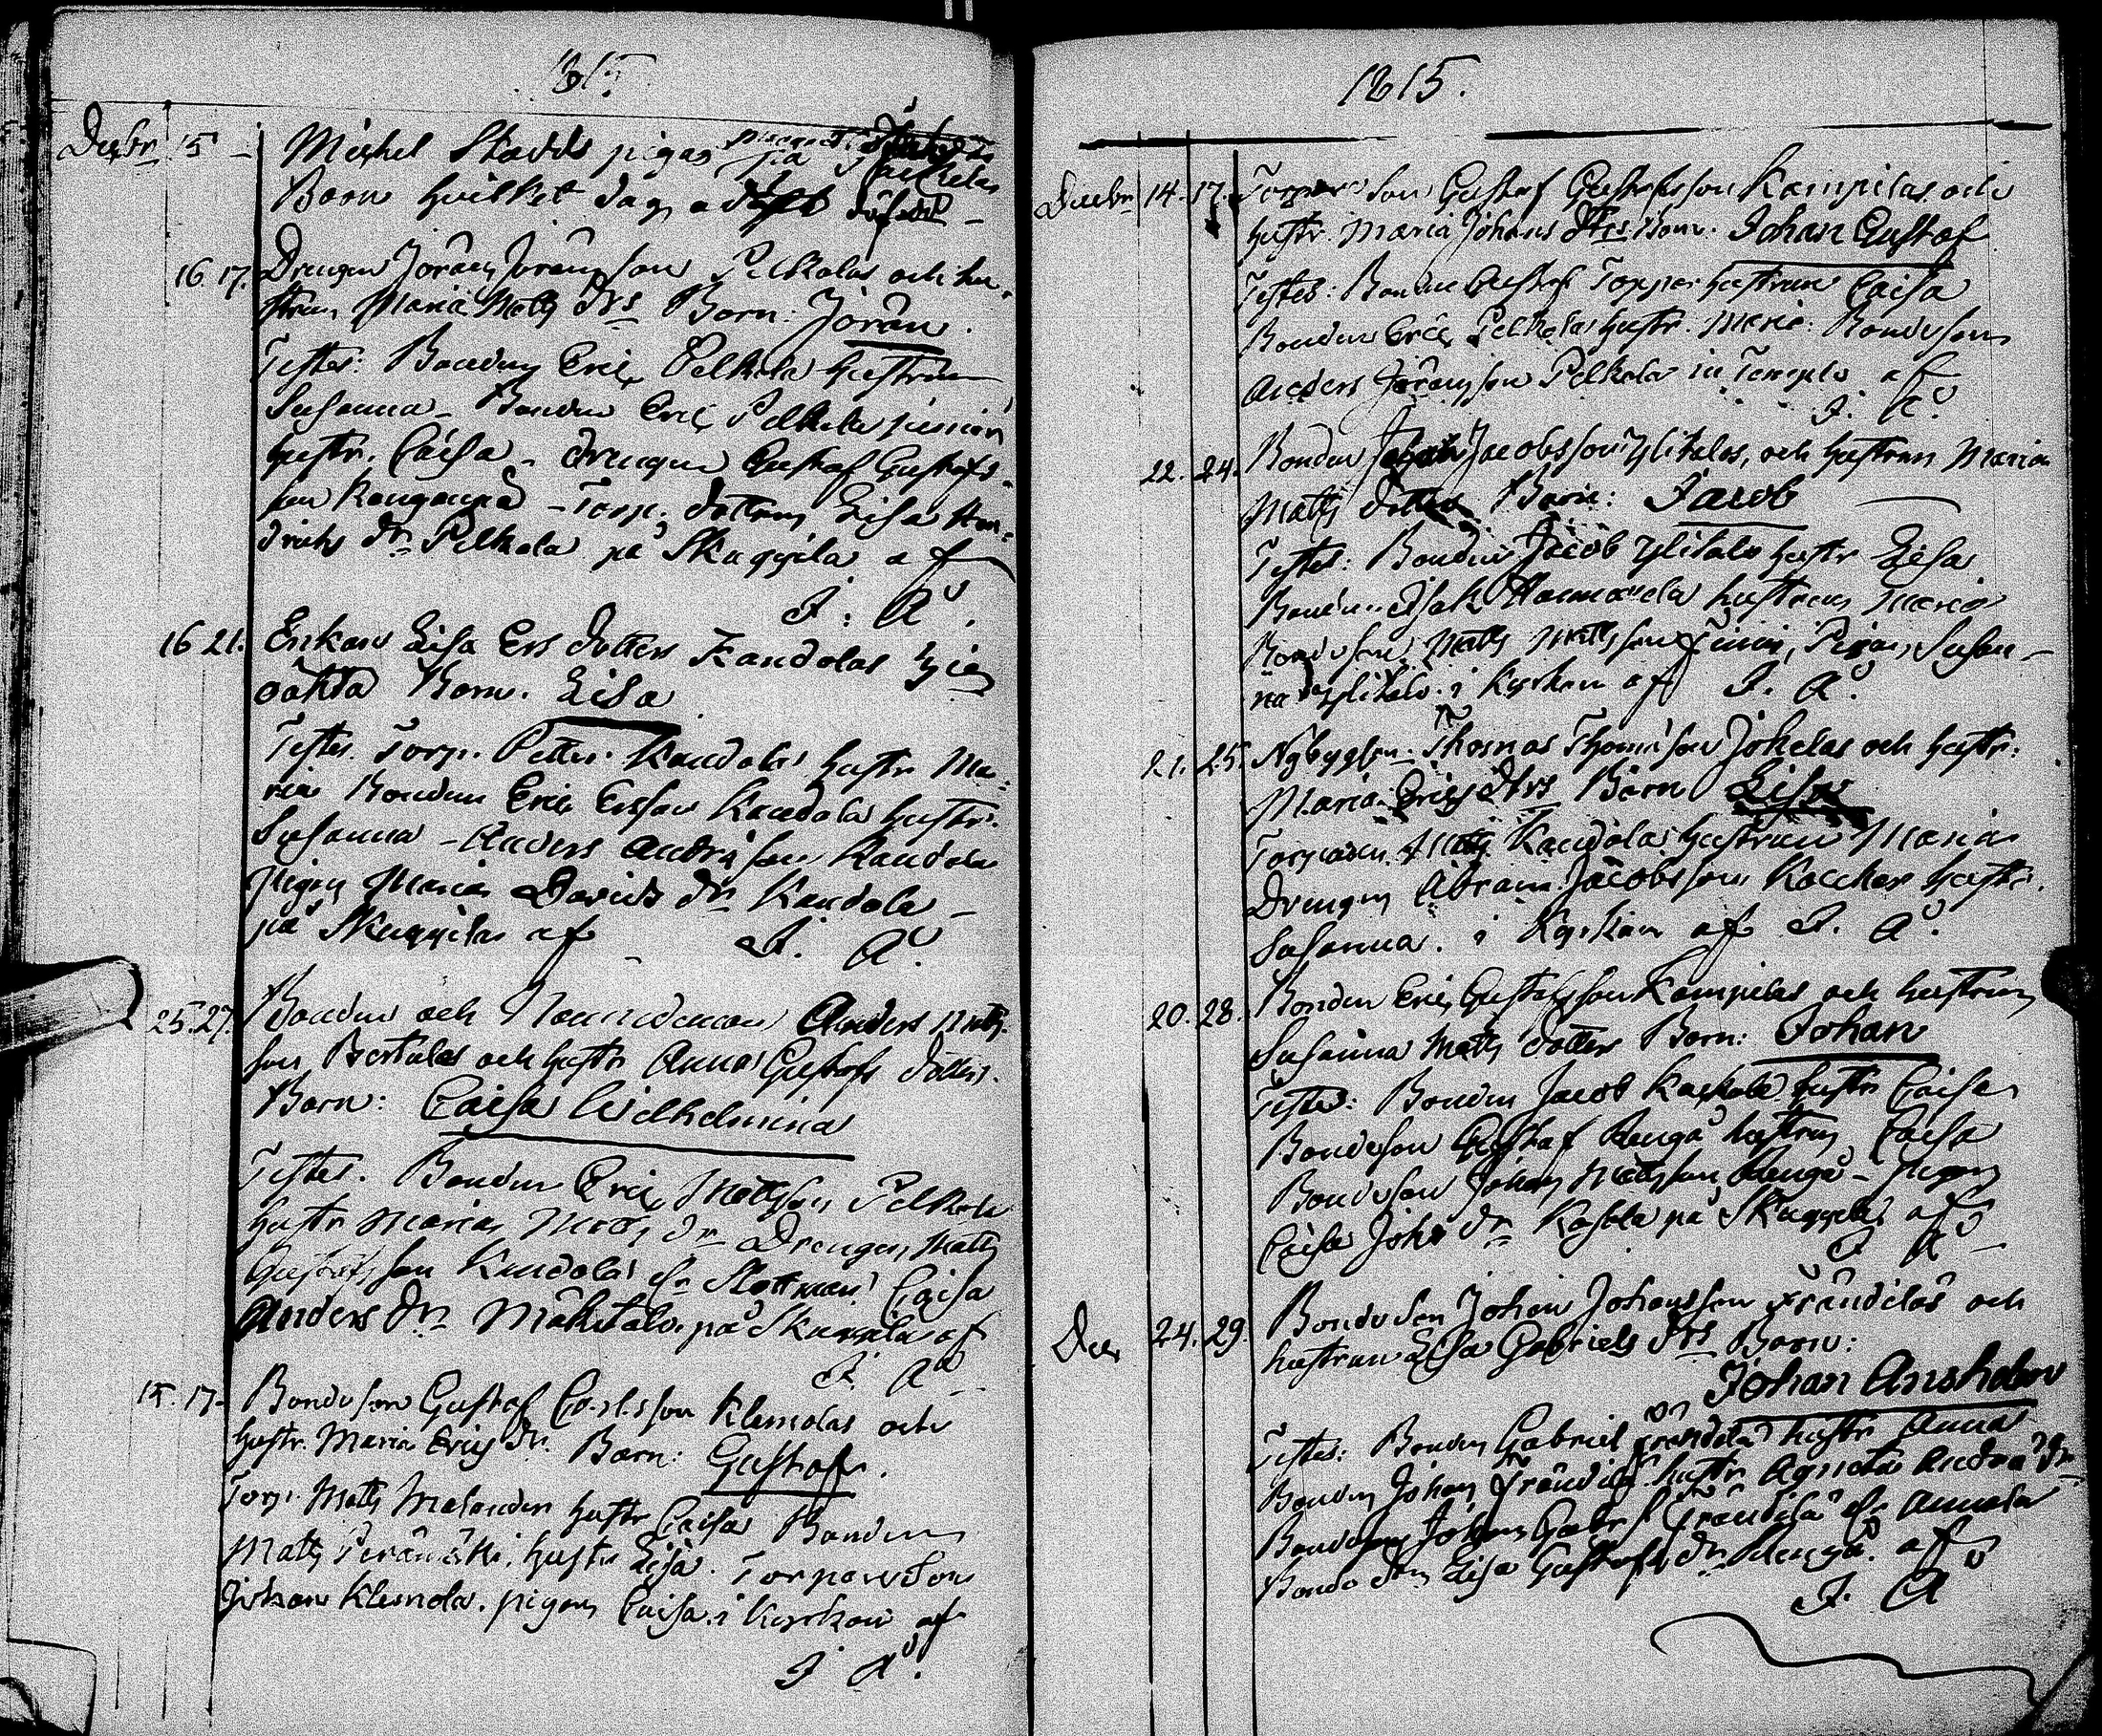 1815.
Decbr 15 - Michel Stadds pigas
Barn hvilket dag
16 17. Drengen Jöran Jöransson Pelkolas och hu-
strun Maria Matts Drs Barn: Jöran.
Testes: Bonden Eric Pelkola hustrun
Susanna - Bonden Eric Pelkola junior
hustr. Caisa - drengen Gustaf Gustafs-
son Rengonpå - Torp. dottern Lisa Hen-
drichs dr Pelkola på Skaggila af
I. A.
16 21. Enkan Lisa Ers dotters Kandolas
oäkta Barn. Lisa
Testes. Torp. Petter Kandola hustr Ma-
ria Bonden Eric Ersson Kandola hustr.
Susanna - Anders Andrsson Kandola
Pigan Maria Davids dr Kandola -
på Skaggila af I. A.
25. 27. Bonden och Nämndeman Anders Matts-
son Bertulas och hustr Anna Gustafs dotters.
Barn: Caisa Wilhelmina
Testes. Bonden Eric Mattsson Pelkola
hustr Maria Matts dr Drengen Matts
Gustafsson Kandola Caisa
Anders dr Mäkitalo. på Skaggila af
I. A.
15. 17. Bondeson Gustaf Carlsson Klemolas och
hustr. Maria Erics dr. Barn: Gustaf.
Torp. Matts Malander hustr Caisa Bonden
Matts Perämäki hustr Lisa. Torpareson
Johan Klemola. pigan Caisa. i Kyrkan af
I A.
1815.
Decbr 14. 17. Torpare son Gustaf Gustafsson Kampilas och
hustr. Maria Johans Drs Barn. Johan Gustaf
Testes: Bonden Gustaf Topper hustrun Caisa
Bonden Eric Pelkola hustr. Maria. Bondeson
Anders Jöransson Pelkola in Templo af
I. A.
22. 24. Bonden Jacobsson Ylitalos, och hustrun Maria
Matts dotters Barn: Jacob
Testes: Bonden Jacob Ylitalo hustr Lisa
Bonden Isak hustrun Maria
Bondeson Matts Mattsson Pigan Susan-
na Ylitalo. i Kyrkan af I. A.
21. 25. Nybyggaren Thomas Thomasson Jokelas och hustr.
Maria Erics Drs Barn Lisa
Torparen Matts Kandola hustrun Maria
Drengen Abram Jacobsson hustr.
Susanna. i Kyrkan af I. A.
20. 28. Bonden Eric Gustafsson Kampilas och hustrun
Susanna Matts dotters Barn: Johan
Testes: Bonden Jacob hustr Caisa
Bondeson Gustaf Rengå hustrun Caisa
Bondeson Johan Mattsson Rengå - pigan
Caisa Johs dr på Skaggila af
I A
Dec 24. 29. Bondeson Johan Johansson Frändilas och
hustrun Lisa Gabriels Drs Barn:
Johan Anshelm
Testes: Bonden Gabriel Frändilä hustr Anna
Bonden Johan Frändilä hustr Agneta Andra dr
Bondeson Johan Gabr Frändilä
Bonde dn Lisa Gustafs dr Rengå. af
I. A